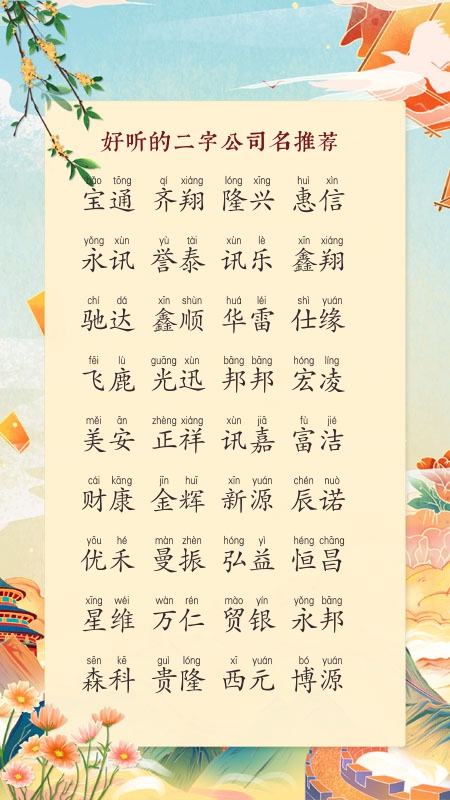 好听的二字公司名推荐
bǎo tōng qí xiáng lóng xīng huì xìn
宝通 齐翔 隆兴 惠信
yǒng xùn yù tài xùn lè xīn xiáng
永讯 誉泰 讯乐 鑫翔
chí dá xīn shùn huá léi shì yuán
驰达 鑫顺 华雷 仕缘
fēi lù guāng xùn bāng bāng hóng líng
飞鹿 光迅 邦邦 宏凌
měi ān zhèng xiáng xùn jiā fù jié
美安 正祥 讯嘉 富洁
cái kāng jīn huī xīn yuán chén nuò
财康 金辉 新源 辰诺
yōu hé màn zhèn hóng yì héng chāng
优禾 曼振 弘益 恒昌
xīng wéi wàn rén mào yín yǒng bāng
星维 万仁 贸银 永邦
sēn kē guì lóng xī yuán bó yuán
森科 贵隆 西元 博源